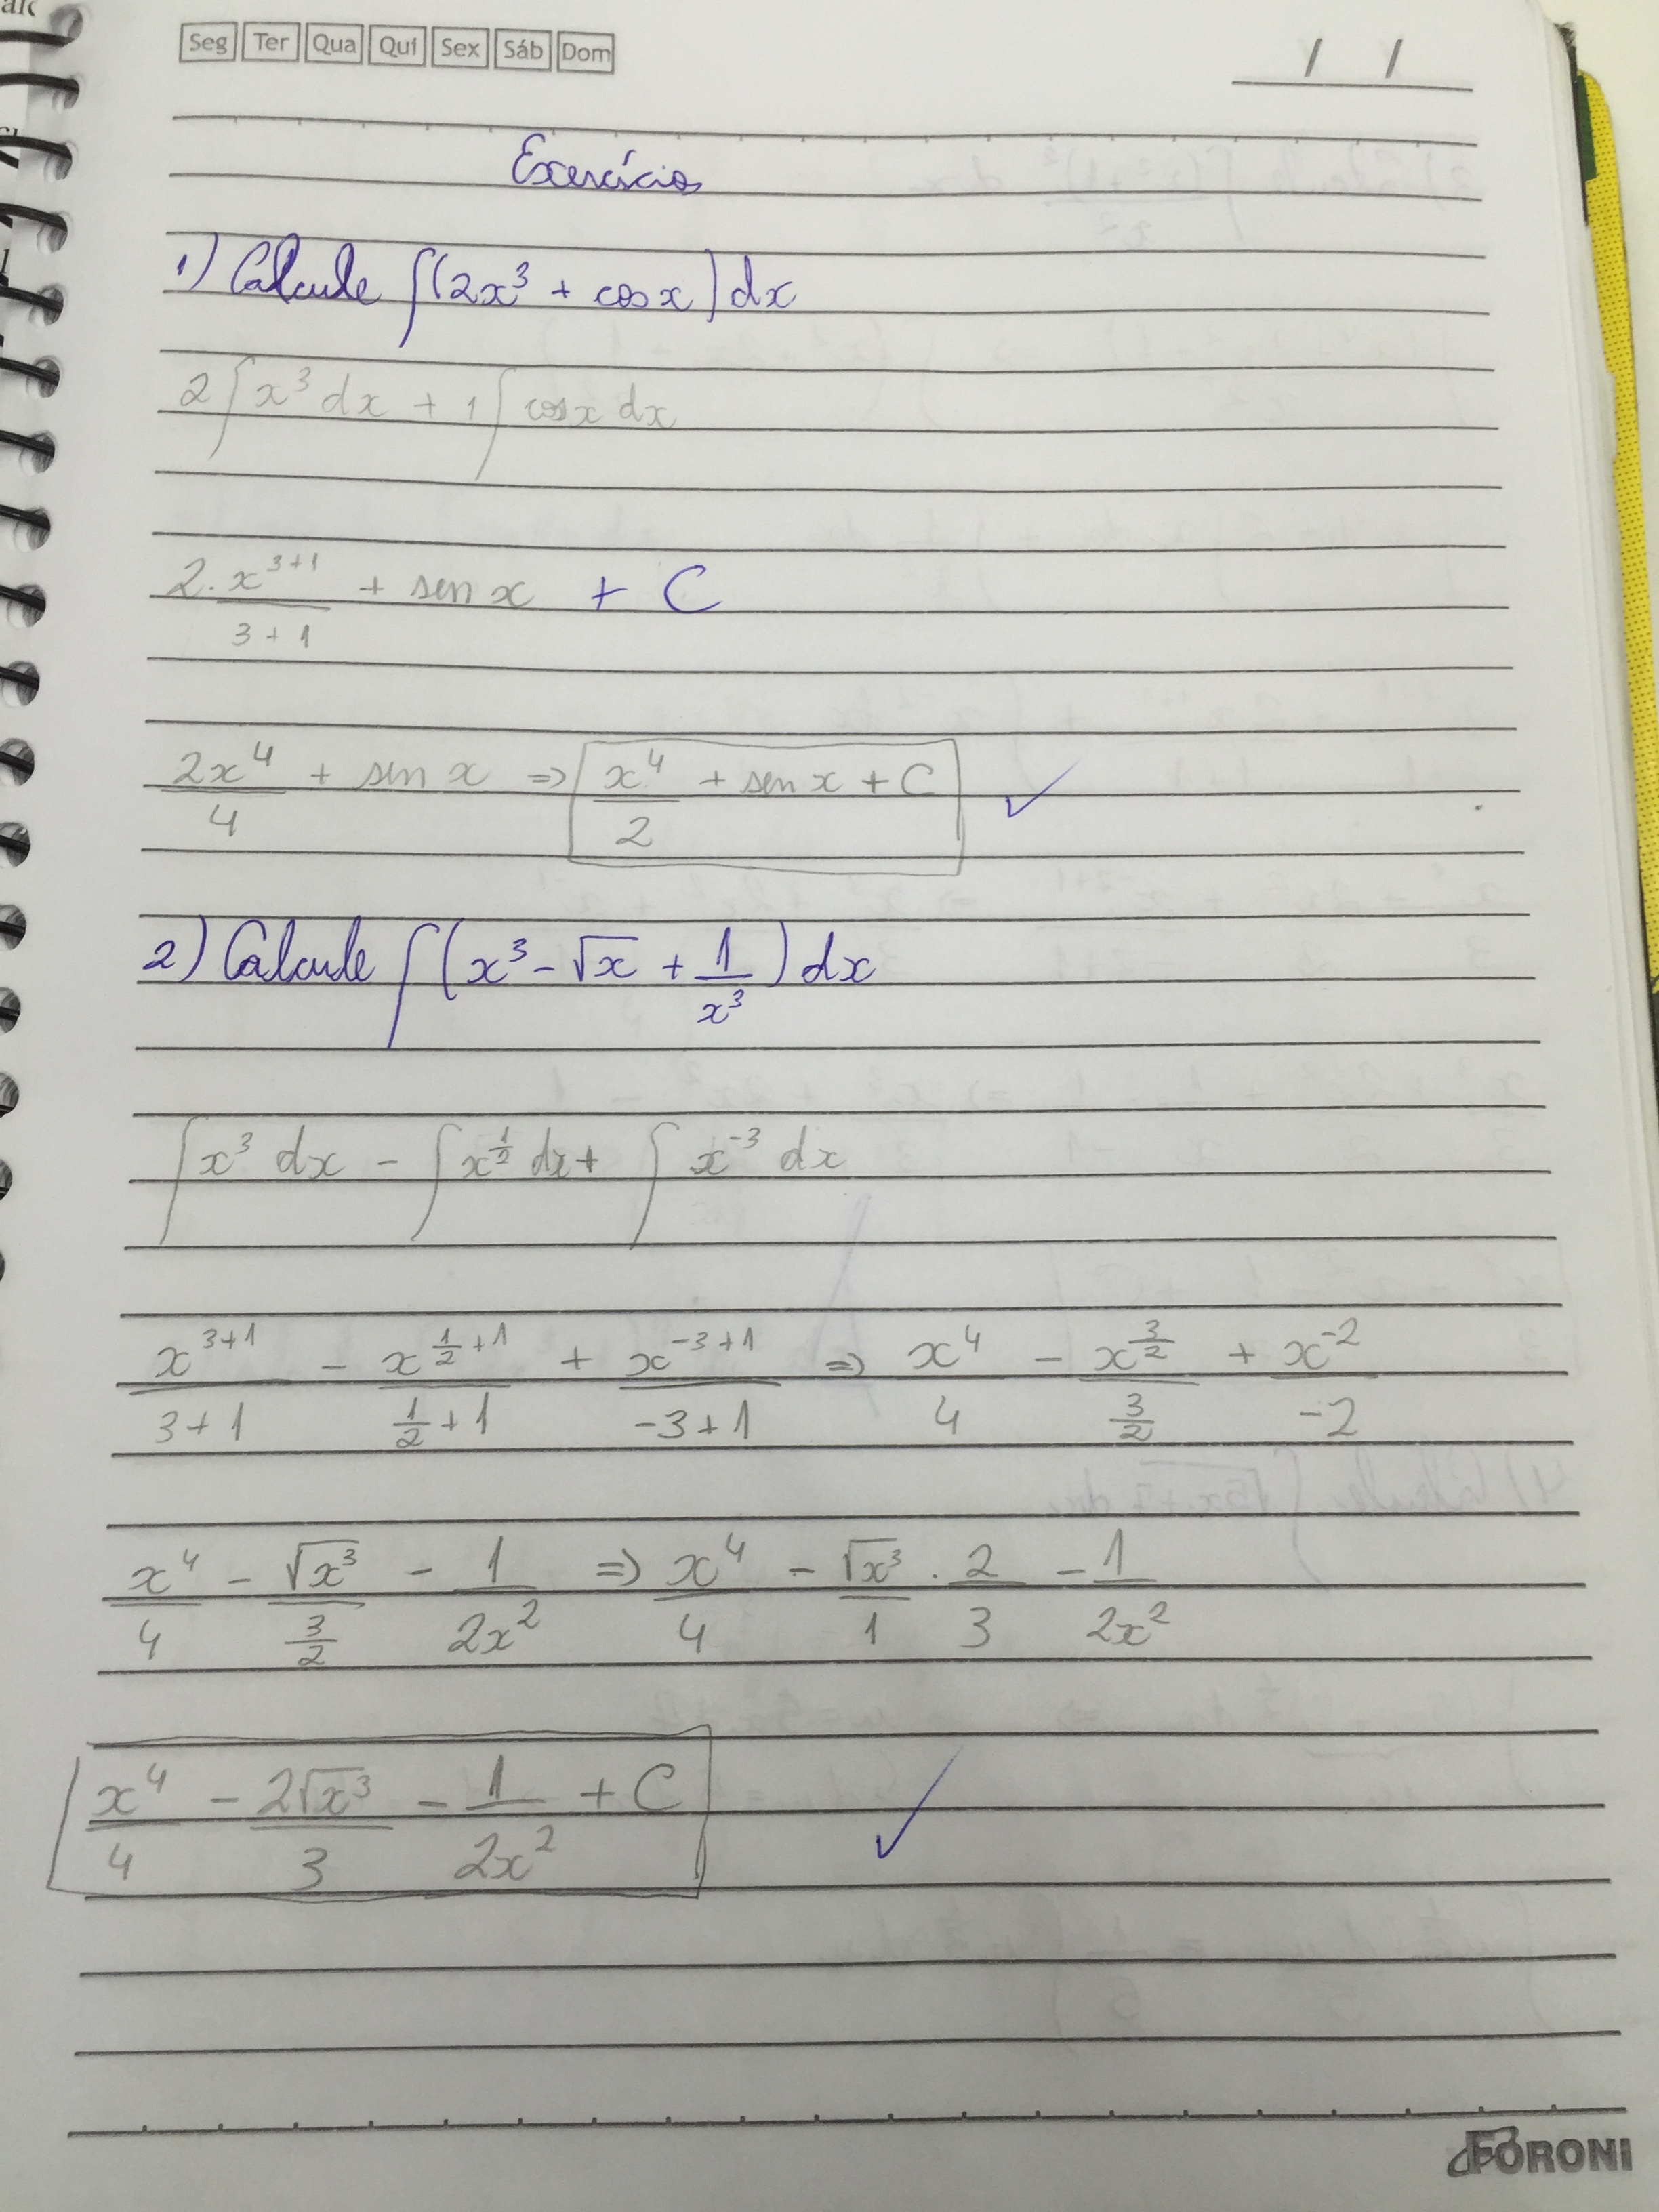 Seg Ter Qua Qui Sex Sáb Dom
/ /
Exercícios
1) Calcule ∫(2x³ + cos x) dx
2∫x³ dx + 1∫cos x dx
2. x^(3+1)/(3+1) + sen x + C
2x⁴/4 + sen x ⇒ x⁴/2 + sen x + C ✓
2) Calcule ∫(x³ - √x + 1/x³) dx
∫x³ dx - ∫x^(1/2) dx + ∫x^-3 dx
x^(3+1)/(3+1) - x^(1/2+1)/(1/2+1) + x^(-3+1)/(-3+1) ⇒ x⁴/4 - x^(3/2)/(3/2) + x^-2/-2
x⁴/4 - √x³/(3/2) - 1/2x² ⇒ x⁴/4 - √x³/1 . 2/3 - 1/2x²
x⁴/4 - 2√x³/3 - 1/2x² + C ✓
FORONI